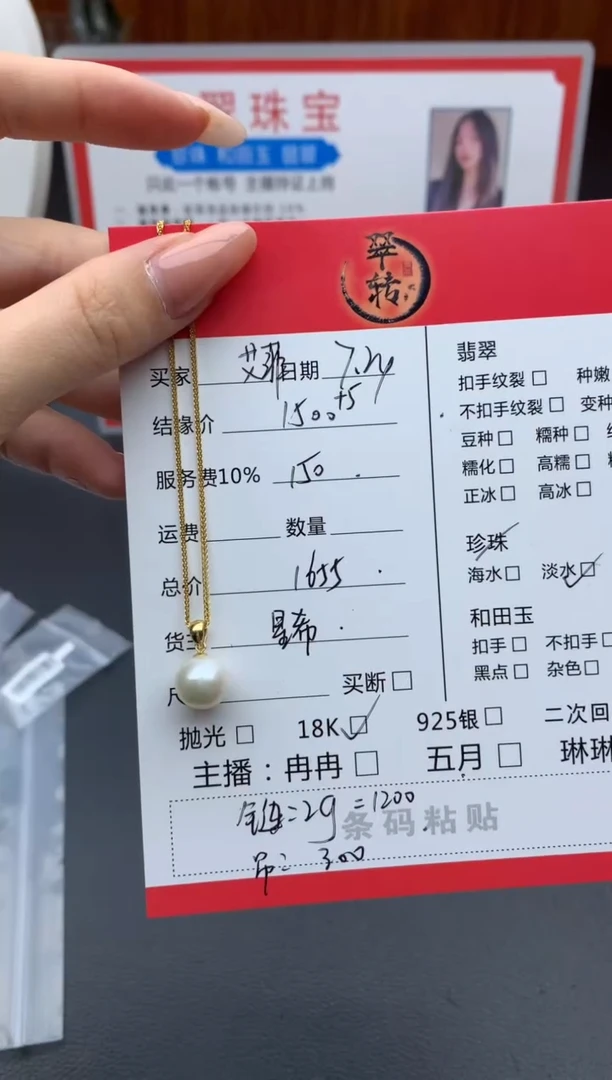 翠珠宝
珍珠 和田玉 翡翠
只此一个帐号 主播持证上岗
翠
转
买家 艾菲 日期 7.24
结缘价 1500+5
服务费10% 150
运费 数量
总价 1655
货主 星希
尺
买断
抛光 18K 925银 二次回
主播：冉冉 五月 琳琳
金链=2g=1200
条码粘贴
吊=300
翡翠
扣手纹裂 种嫩
不扣手纹裂 变种
豆种 糯种
糯化 高糯
正冰 高冰
珍珠
海水 淡水
和田玉
扣手 不扣手
黑点 杂色